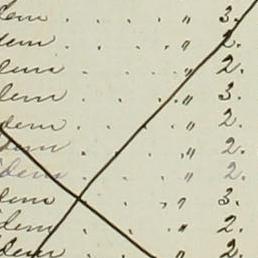 dem . . . . " 3.
dem . . . . " 2.
dem . . . . " 2.
dem . . . . " 3.
dem . . . . " 2.
dem . . . . " 2.
idem . . . . " 2.
dem . . . . " 3.
dem . . . . " 2.
dem . . . . " 2.